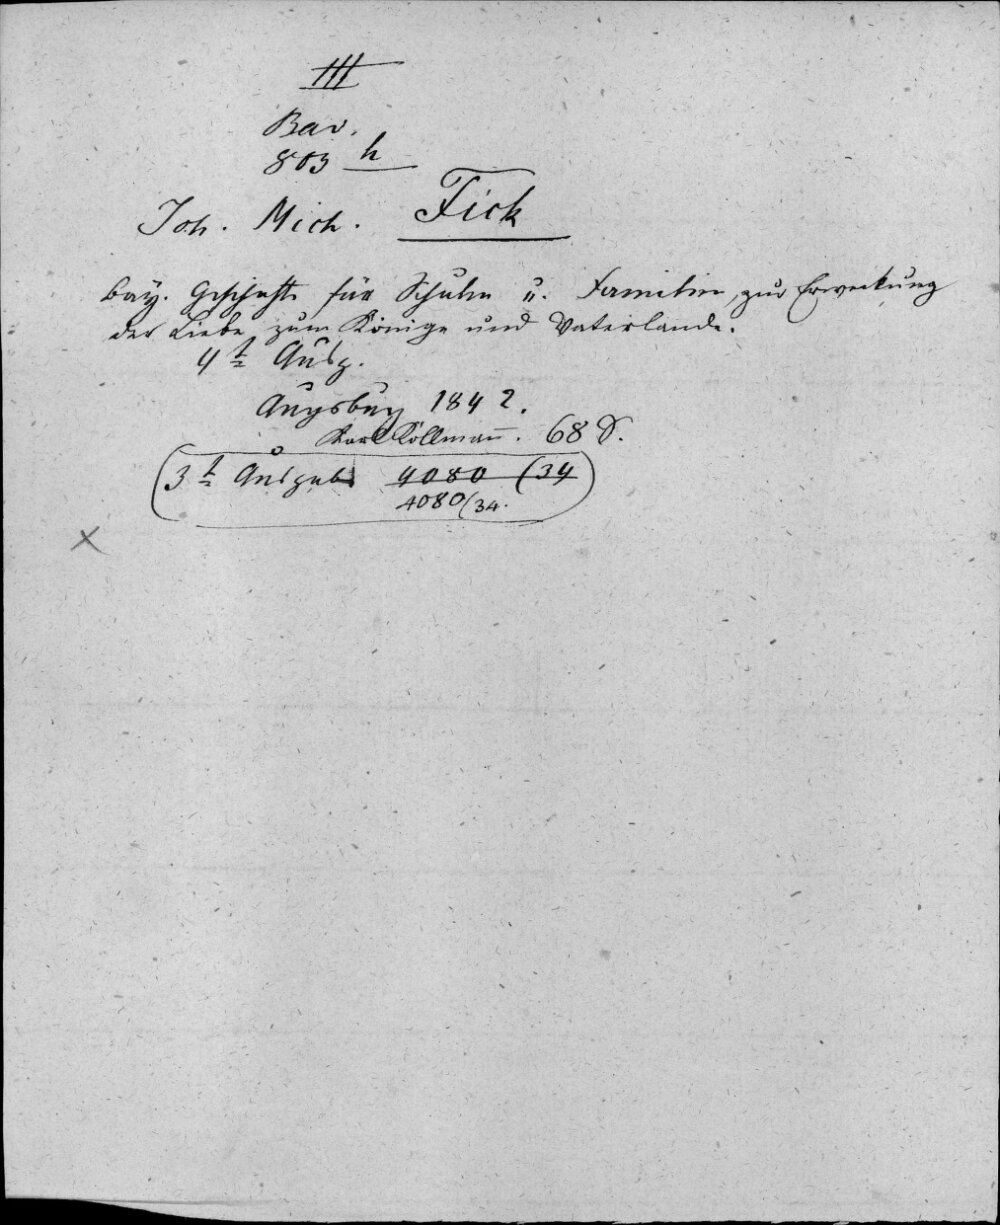 III
Bav.
803 h
Joh. Mich. Fick
bay. Geschichte für Schulen u. Familien, zur Erweckung
der Liebe zum Könige und Vaterlande.
4t Ausg.
Augsburg 1842.
Karl Kollmañ. 68 S.
(3t Ausgabe 4080 (34)
4080/34.
X